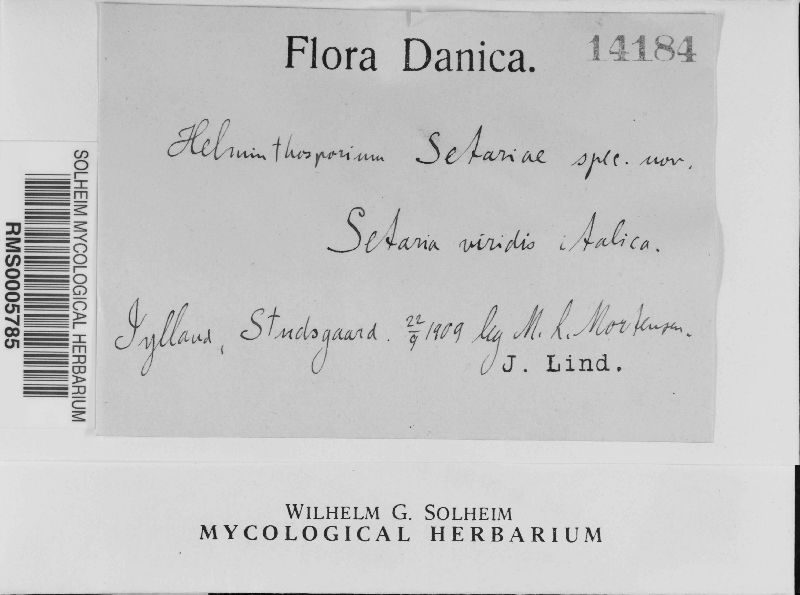 Flora Danica. 14184
Helminthosporium Setariae spec. nov.
Setaria viridis italica.
Jylland, Studsgaard. 22/9 1909 leg M. L. Mortensen.
J. Lind.
SOLHEIM MYCOLOGICAL HERBARIUM
RMS0005785
WILHELM G. SOLHEIM
MYCOLOGICAL HERBARIUM